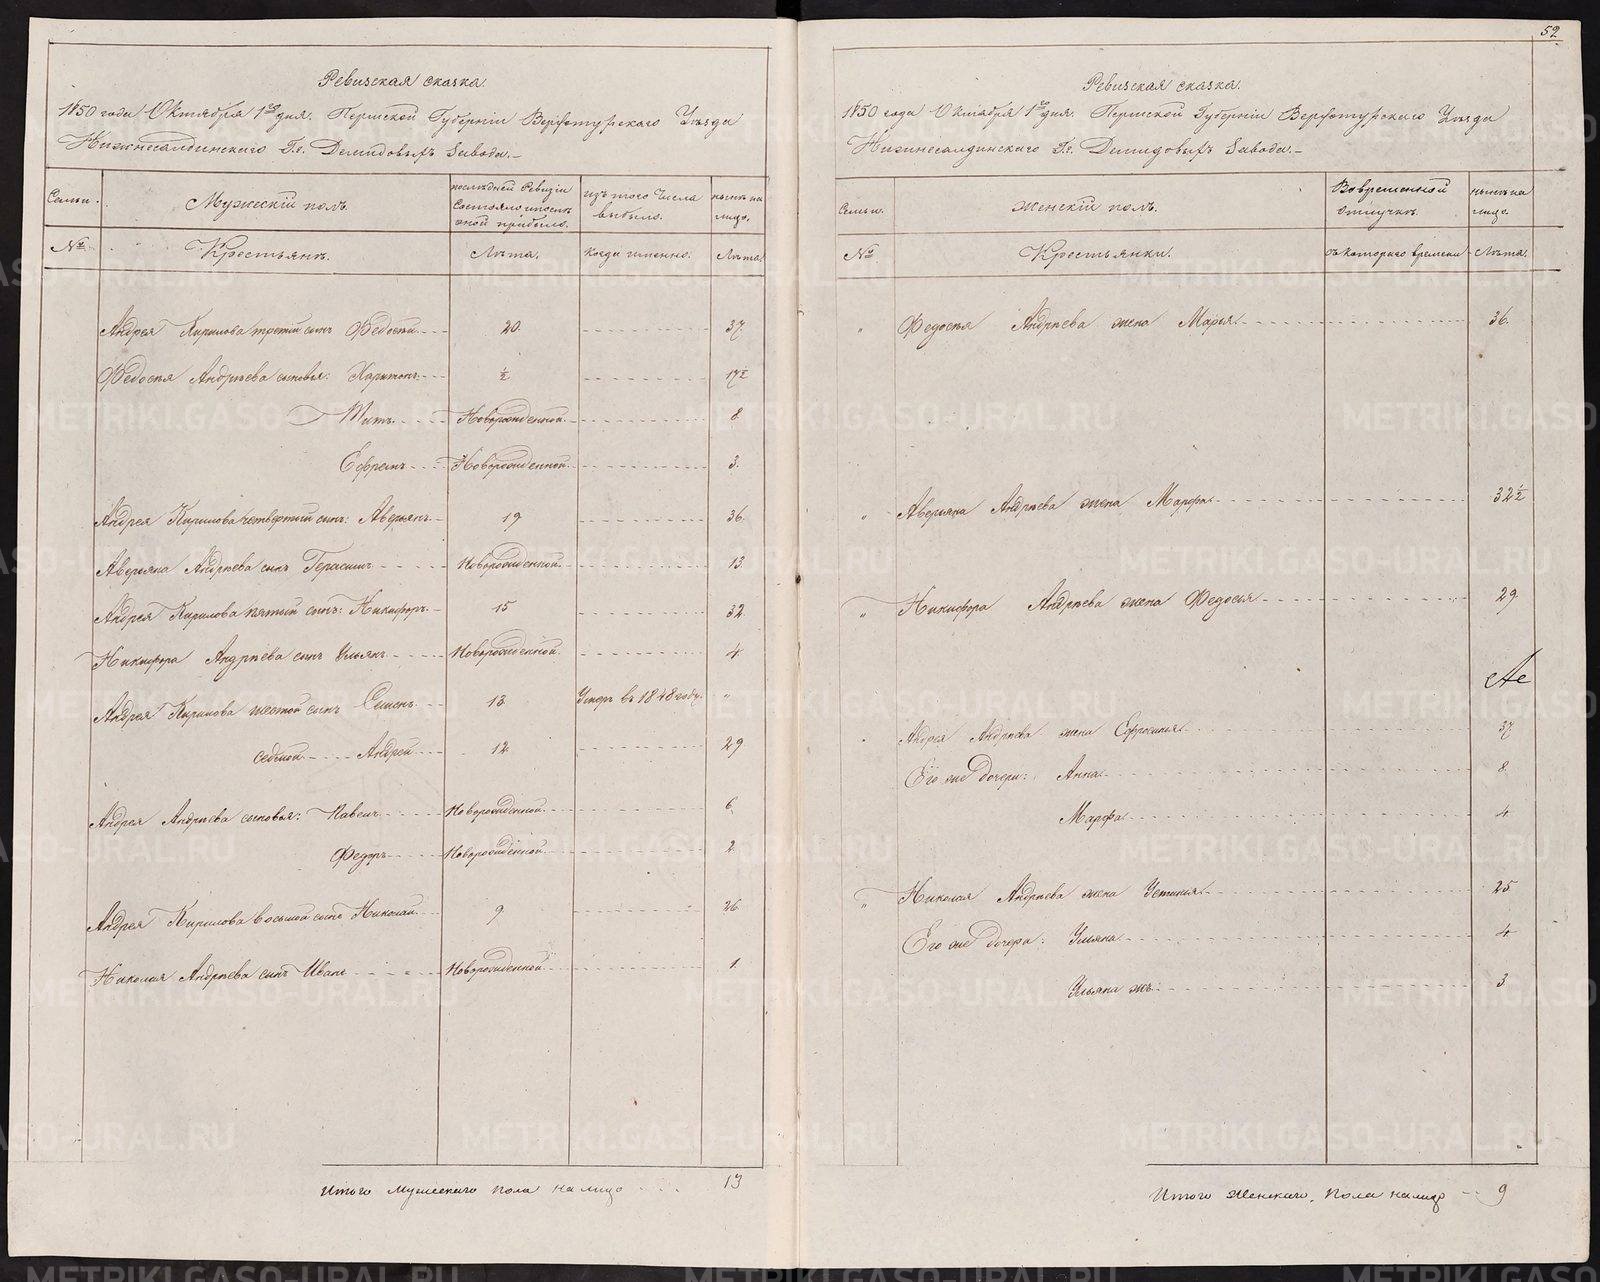 Ревизская сказка.
1850 года Октября 1го дня. Пермской Губернiи Верхотурскаго Уѣзда
Нижнесалдинскаго Гг. Демидовыхъ Завода.
Семьи.
Мужескiй полъ.
последней Ревизiи состояло и после оной прибыло.
изъ того числа выбыло.
нынѣ на лицо.
№
Крестьянъ.
Лѣта.
когда именно.
Лѣта.
Андрея Кирилова третiй сынъ Федосѣй 20. 37.
Федосѣя Андрѣева сыновья: Харитонъ ½ 17½
Титъ Новорожденной 8.
Ефремъ Новорожденной 3.
Андрея Кирилова четвертый сынъ: Аверьянъ 19 36.
Аверьяна Андрѣева сынъ Герасимъ Новорожденной 13.
Андрея Кирилова пятый сынъ: Никифоръ 15 32.
Никифора Андрѣева сынъ Ульянъ Новорожденной 4.
Андрея Кирилова шестой сынъ Семенъ 13. Умеръ въ 1848 году. "
седьмой Андрей 12 29
Андрея Андрѣева сыновья: Павелъ Новорожденной 6.
Федоръ Новорожденной 2.
Андрея Кирилова восьмой сынъ Николай 9. 26.
Николая Андрѣева сынъ Иванъ Новорожденной 1.
Итого мужескаго пола на лицо 13
52
Ревизская сказка.
1850 года Октября 1го дня. Пермской Губернiи Верхотурскаго Уѣзда
Нижнесалдинскаго Гг. Демидовыхъ Завода.
Семьи.
Женскiй полъ.
Во временной отлучкѣ.
нынѣ на лицо.
№
Крестьянки.
съ котораго времени
Лѣта.
" Федосѣя Андрѣева жена Марья 36.
" Аверьяна Андрѣева жена Марфа 32½
" Никифора Андрѣева жена Федосья 29.
" Андрея Андрѣева жена Ефросинья 37
Его же дочери: Анна 8.
Марфа 4.
" Николая Андрѣева жена Устинья 25
Его же дочери: Ульяна 4
Ульяна жъ 3.
Итого Женскаго пола налицо 9